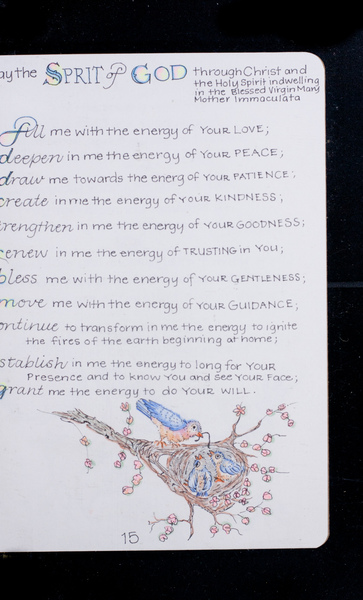 ay the SPRIT of GOD through Christ and
the Holy Spirit indwelling
in the Blessed Virgin Mary
Mother Immaculata
fill me with the energy of YOUR LOVE;
deepen in me the energy of YOUR PEACE;
draw me towards the energ of YOUR PATIENCE;
create in me the energy of YOUR KINDNESS;
rengthen in me the energy of YOUR GOODNESS;
renew in me the energy of TRUSTING in YOU;
bless me with the energy of YOUR GENTLENESS;
move me with the energy of YOUR GUIDANCE;
ontinue to transform in me the energy to ignite
the fires of the earth beginning at home;
stablish in me the energy to long for YOUR
Presence and to know YOU and see YOUR Face;
grant me the energy to do YOUR WILL.
15